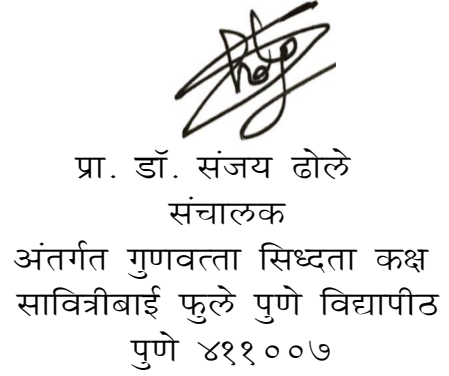 प्रा. डॉ. संजय ढोले
संचालक
अंतर्गत गुणवत्ता सिध्दता कक्ष
सावित्रीबाई फुले पुणे विद्यापीठ
पुणे ४११००७